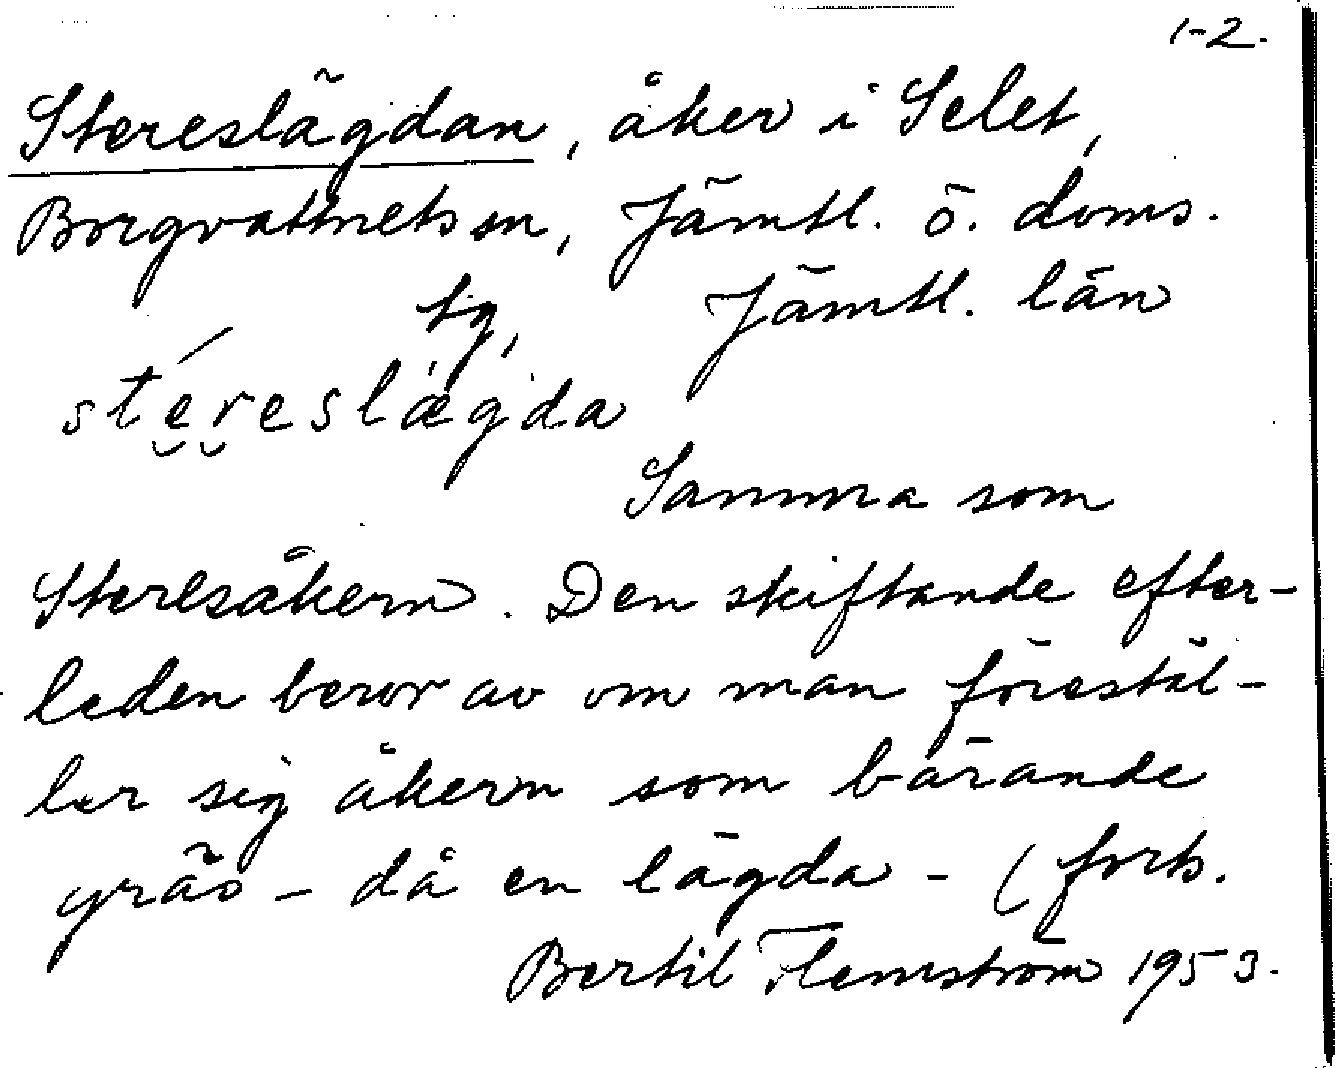 1-2.
Stereslägdan, åker i Selet,
Borgvattnets sn, Jämtl. ö. doms.
tg, Jämtl. län
stereslægda
Samma som
Steresåkern. Den skiftande efter-
leden beror av om man förestäl-
ler sig åkern som bärande
gräs - då en lägda - (forts.
Bertil Flemström 1953.